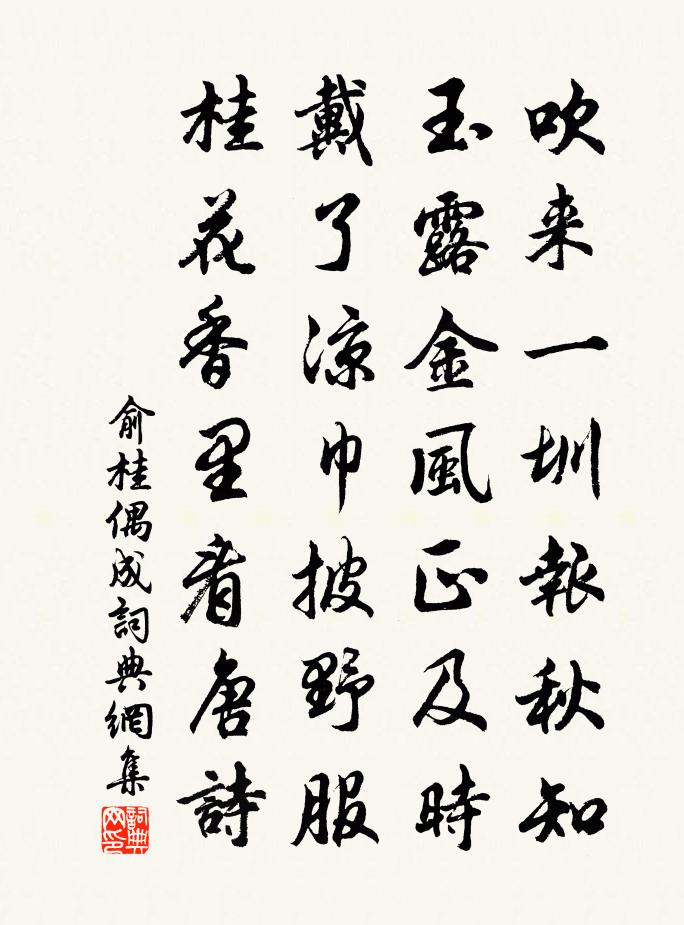 吹来一圳報秋知
玉露金風正及時
戴了凉巾披野服
桂花香里看唐詩
俞桂偶成詞典網集
詞典网印